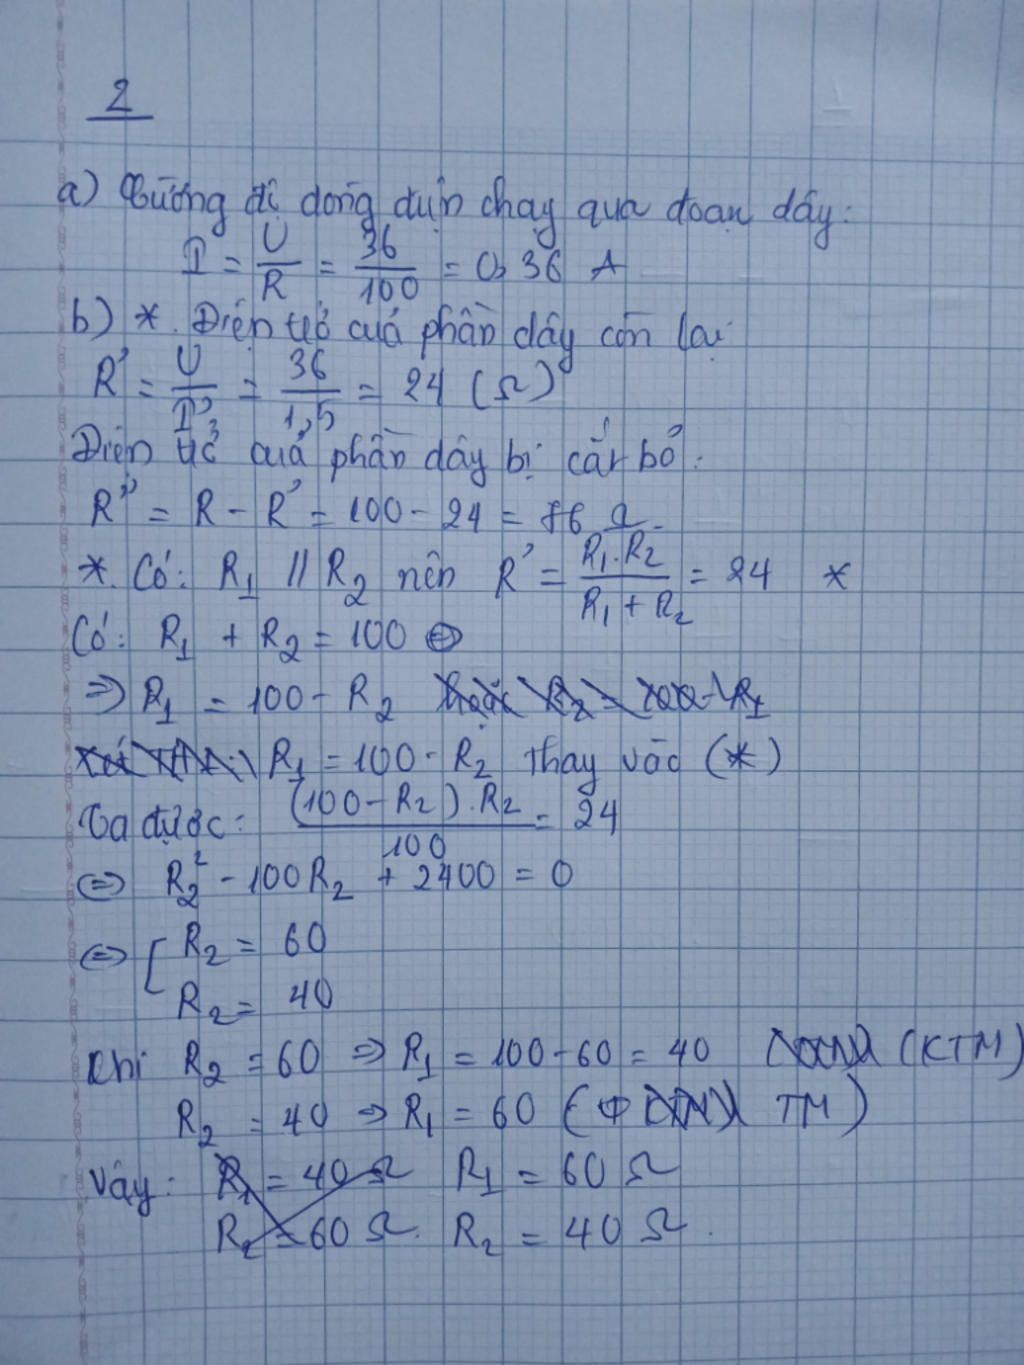 2
a) Cường độ dòng điện chạy qua đoạn dây:
I = U/R = 36/100 = 0,36 A
b) *. Điện trở của phần dây còn lại
R' = U/I' = 36/1,5 = 24 (Ω)
Điện trở của phần dây bị cắt bỏ:
R'' = R - R' = 100 - 24 = 76 Ω
*. Có: R₁ // R₂ nên R' = R₁.R₂/(R₁ + R₂) = 24 *
Có: R₁ + R₂ = 100 ⇔
⇒ R₁ = 100 - R₂ hoặc R₂ = 100 - R₁
R₁ = 100 - R₂ thay vào (*)
Ta được: (100 - R₂).R₂/100 = 24
⇔ R₂² - 100R₂ + 2400 = 0
⇔ [ R₂ = 60
R₂ = 40
Khi R₂ = 60 ⇒ R₁ = 100 - 60 = 40 (KTM)
R₂ = 40 ⇒ R₁ = 60 ( TM )
Vậy: R₁ = 40 Ω R₁ = 60 Ω
R₂ = 60 Ω. R₂ = 40 Ω.